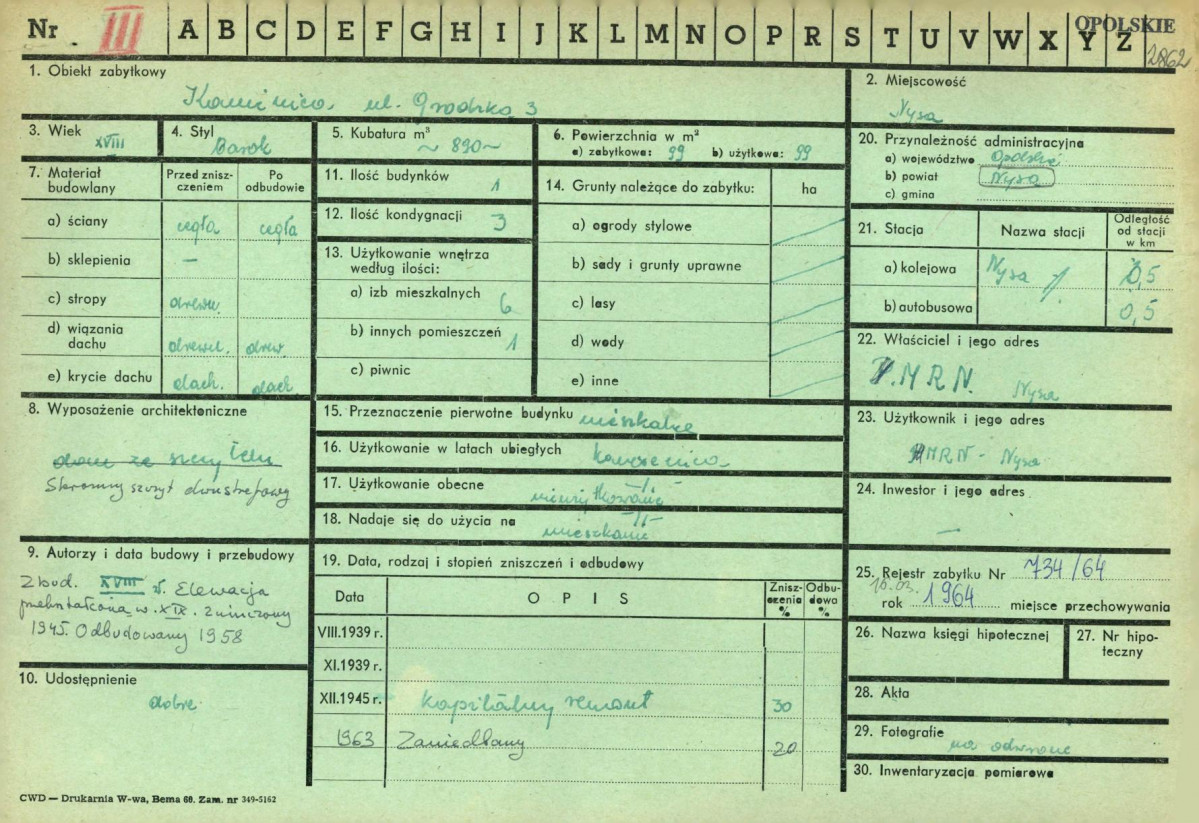 Nr III A B C D E F G H I J K L M N O P R S T U V W X Y Z OPOLSKIE
2862
1. Obiekt zabytkowy
Kamienica ul. Grodzka 3
2. Miejscowość
Nysa
3. Wiek
XVIII
4. Styl
Barok
5. Kubatura m³
~ 890 ~
6. Powierzchnia w m²
a) zabytkowa: 99 b) użytkowa: 99
7. Materiał budowlany
Przed zniszczeniem
Po odbudowie
a) ściany cegła cegła
b) sklepienia –
c) stropy drewn.
d) wiązania dachu drewn. drew.
e) krycie dachu dach. dach
8. Wyposażenie architektoniczne
dom ze szczytem
Skromny szczyt dwustrefowy
9. Autorzy i data budowy i przebudowy
Zbud. XVIII w. Elewacja
przekształcona w. XIX. Zniszczony
1945. Odbudowany 1958
10. Udostępnienie
dobre
11. Ilość budynków 1
12. Ilość kondygnacji 3
13. Użytkowanie wnętrza według ilości:
a) izb mieszkalnych 6
b) innych pomieszczeń 1
c) piwnic
14. Grunty należące do zabytku: ha
a) ogrody stylowe
b) sady i grunty uprawne
c) lasy
d) wody
e) inne
15. Przeznaczenie pierwotne budynku mieszkalne
16. Użytkowanie w latach ubiegłych kamienica
17. Użytkowanie obecne
18. Nadaje się do użycia na mieszkanie
19. Data, rodzaj i stopień zniszczeń i odbudowy
Data OPIS Zniszczenia % Odbudowa %
VIII.1939 r.
XI.1939 r.
XII.1945 r. kapitalny remont 30
1963 Zaniedbany 20
20. Przynależność administracyjna
a) województwo Opolskie
b) powiat Nysa
c) gmina
21. Stacja Nazwa stacji Odległość od stacji w km
a) kolejowa Nysa 0,5
b) autobusowa 0,5
22. Właściciel i jego adres
M R N. Nysa
23. Użytkownik i jego adres
MRN - Nysa
24. Inwestor i jego adres
–
25. Rejestr zabytku Nr 734/64
10.03.
rok 1964 miejsce przechowywania
26. Nazwa księgi hipotecznej
27. Nr hipoteczny
28. Akta
29. Fotografie
na odwrocie
30. Inwentaryzacja pomiarowa
CWD — Drukarnia W-wa, Bema 60. Zam. nr 349-5162